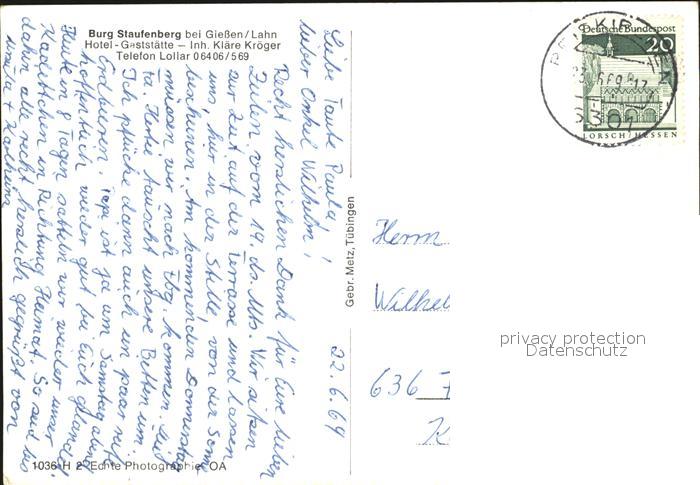 Burg Staufenberg bei Gießen/Lahn
Hotel-Gaststätte — Inh. Kläre Kröger
Telefon Lollar 06406/569
22.6.69
Liebe Tante Paula!
lieber Onkel Wilhelm!
Recht herzlichen Dank für Eure lieben
Zeilen vom 19. ds. Mts. Wir sitzen
zur Zeit auf der Terrasse und lassen
uns hier in der Stille, von der Sonne
bescheinen. Am kommenden Donnerstag
müssen wir nach Fbg. kommen.
Heute tauscht unsere Betten um.
Ich pflücke dann auch ein paar reife
Erdbeeren. Papa ist ja am Samstag abend
hoffentlich wieder gut bei Euch gelandet.
Heute in 8 Tagen satteln wir wieder unser
Kadettchen in Richtung Heimat. So seid bis
dahin alle recht herzlich gegrüßt von
+ Karlheinz
1036 H 2 Echte Photographie OA
Gebr. Metz, Tübingen
Deutsche Bundespost
20
LORSCH/HESSEN
6301
Herrn
Wilhel
636 F
K
privacy protection
Datenschutz